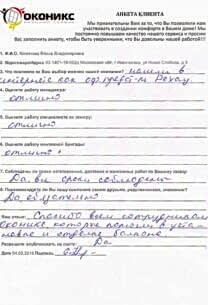 ОКОНИКС
АНКЕТА КЛИЕНТА
Мы признательны Вам за то, что Вы позволили нам
участвовать в создании комфорта в Вашем доме! Мы
постоянно повышаем качество нашего сервиса и просим
Вас заполнить анкету, чтобы быть уверенными, что Вы довольны нашей работой!!!
1. Ф.И.О. Владимировна
3. Что повлияло на Ваш выбор именно нашей компании? нашли в
интернете как оф. Рехау.
4. Оцените работу менеджера:
отлично
5. Оцените работу специалиста по замеру:
отлично
6. Оцените работу монтажной бригады:
отлично
7. Соблюдены ли сроки изготовления, доставки и монтажа по Вашему заказу
Да, все сроки соблюдены
8. Порекомендуете ли Вы нашу компанию своим друзьям, родственникам, знакомым?
Да обязательно
Ваш отзыв: Спасибо всем сотрудникам
оконикс, которые помогли в
и отделке балкона.
Разрешаете опубликовать на сайте: Да
Дата 04.03.2016 Подпись